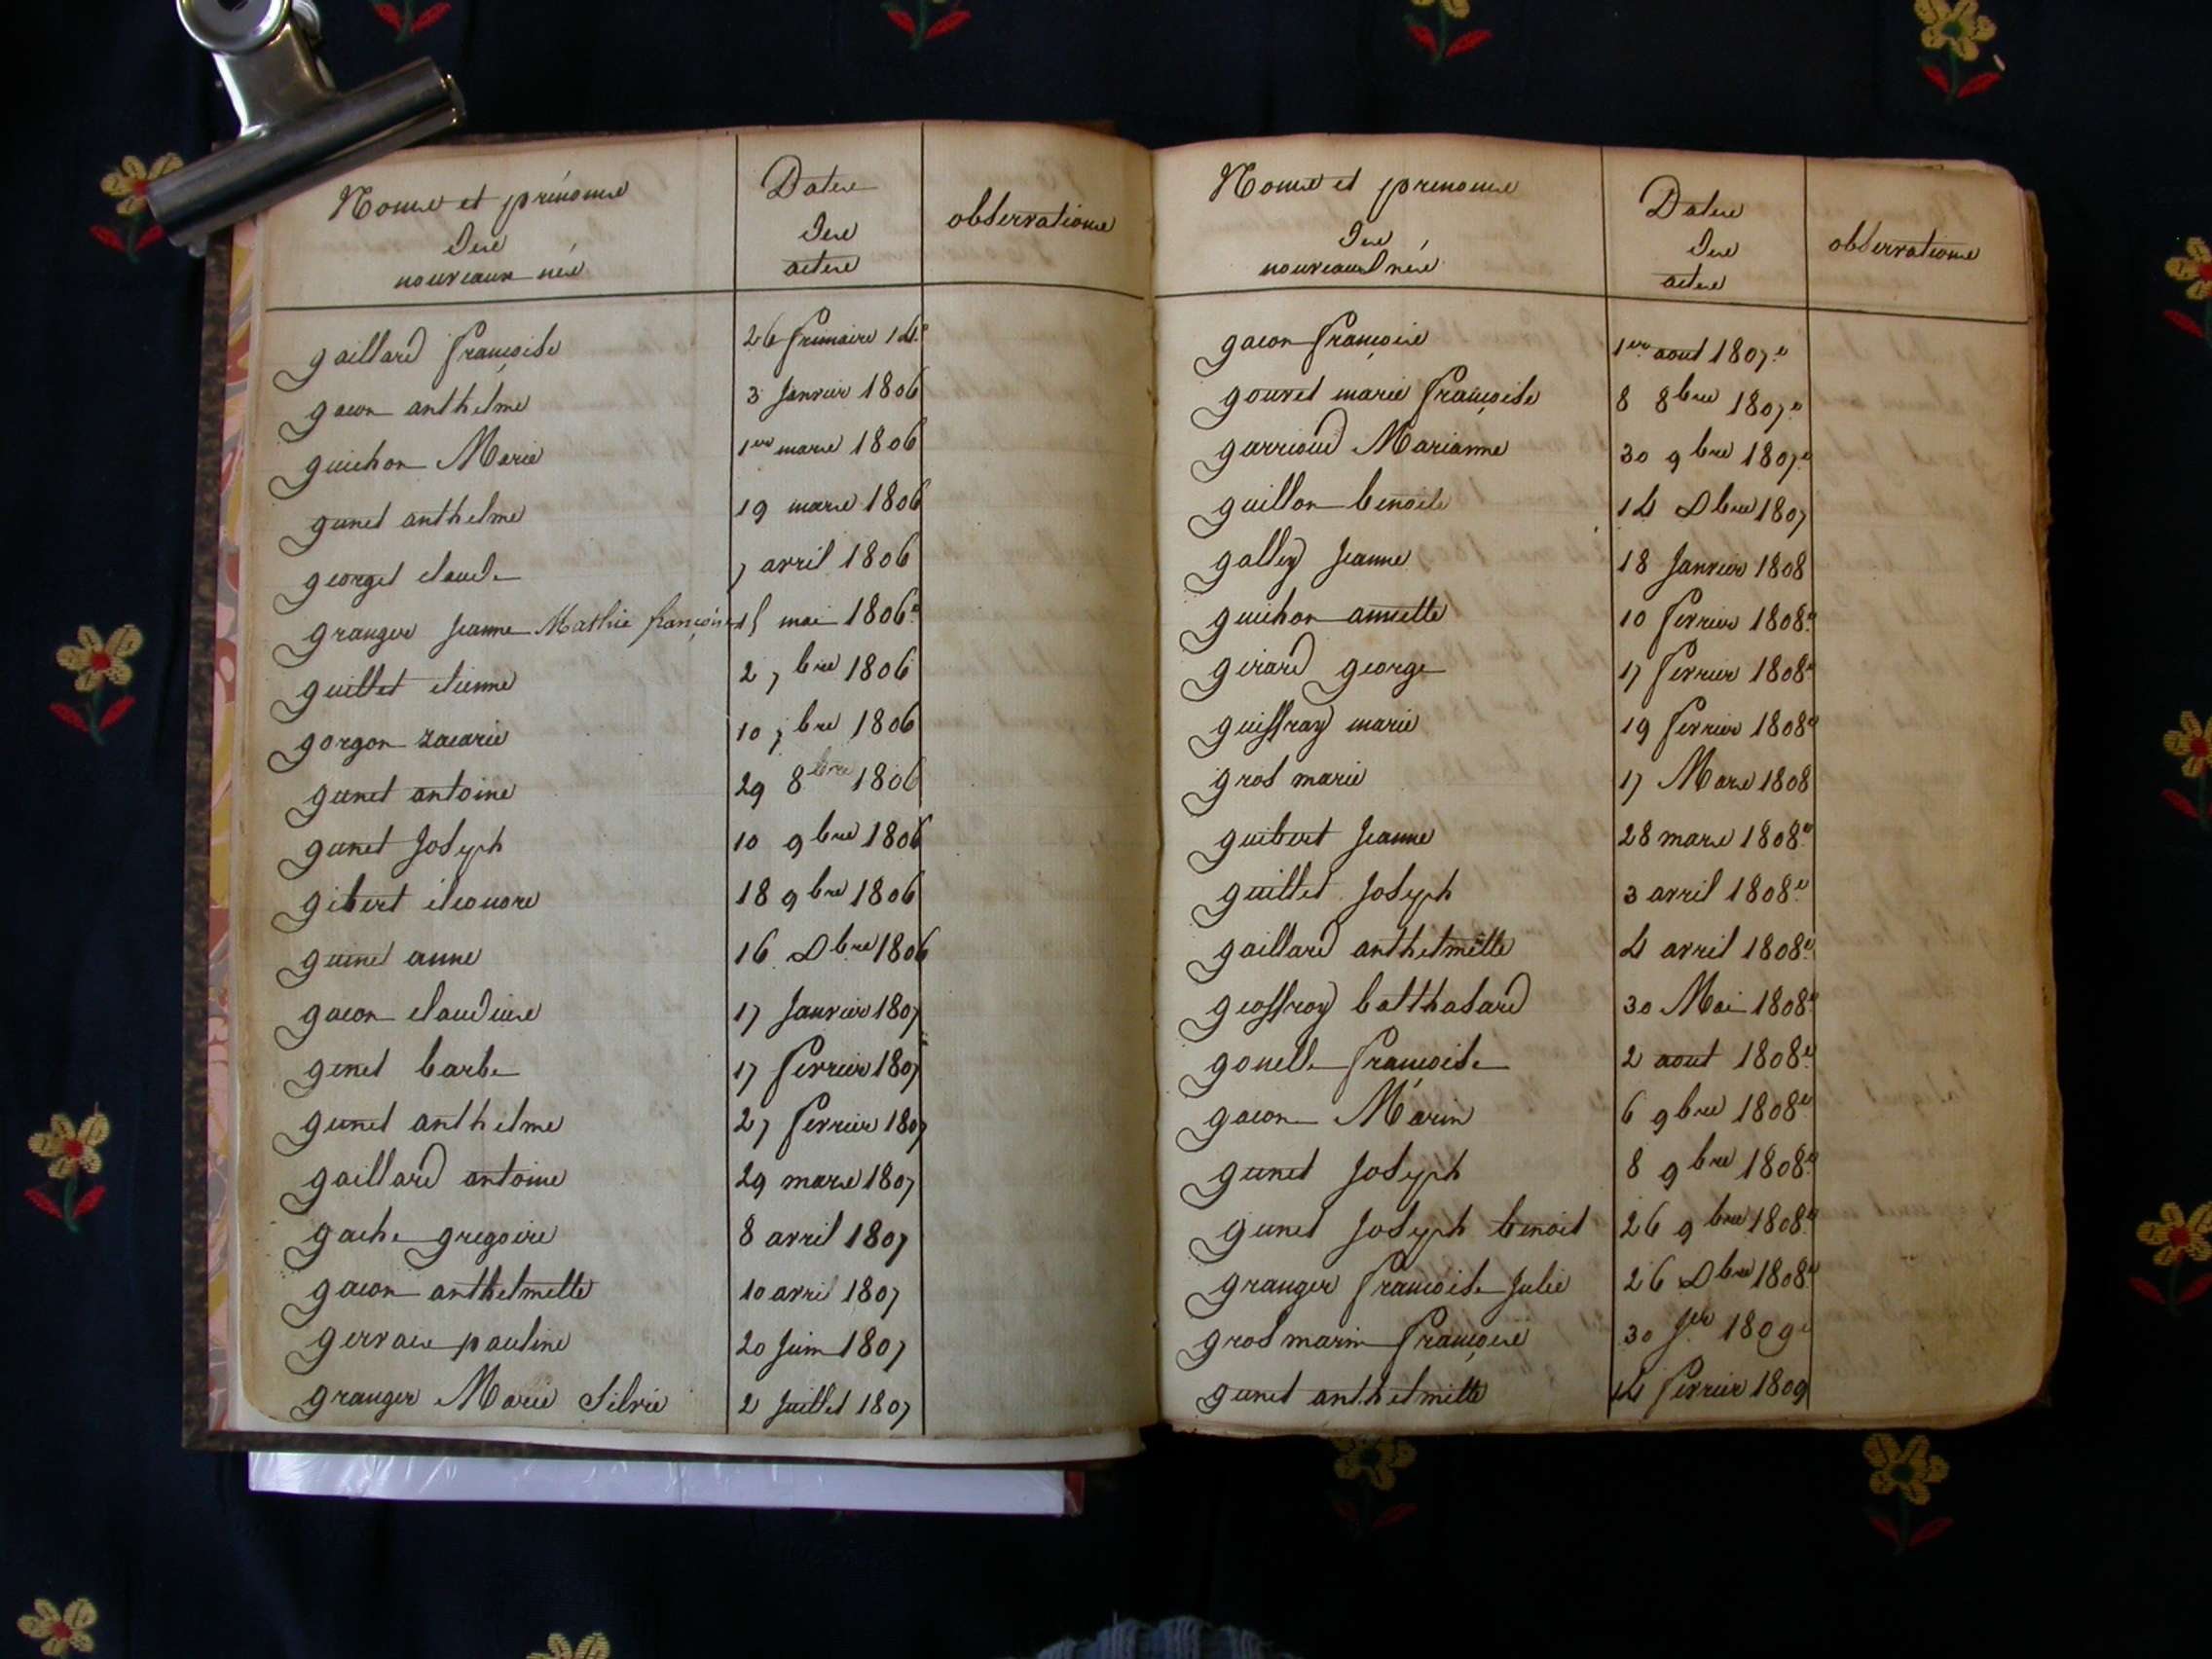 Noms et prénoms
des
nouveaux nés
Dates
des
actes
observations
gaillard françoise 26 frimaire 14.e
gacon anthelme 3 Janvier 1806
guichon Marie 1er mars 1806
gunet anthelme 19 mars 1806
georget claude 7 avril 1806
granger Jeanne Mathie françoise 15 mai 1806
guillet etienne 2 7bre 1806
gorgon zacarie 10 7bre 1806
gunet antoine 29 8bre 1806
gunet Joseph 10 9bre 1806
gibert eleonore 18 9bre 1806
guinet anne 16 Dbre 1806
gacon claudine 17 Janvier 1807
genet barbe 17 fevrier 1807
gunet anthelme 27 fevrier 1807
gaillard antoine 29 mars 1807
gache gregoire 8 avril 1807
gacon anthelmette 10 avril 1807
gervais pauline 20 Juin 1807
granger Marie Silvie 2 Juillet 1807
Noms et prenoms
des
nouveaux nés
Dates
des
actes
observations
gacon françois 1er aout 1807
gouvet marie françoise 8 8bre 1807
garrioud Marianne 30 9bre 1807
guillon benoite 14 Dbre 1807
galley Jeanne 18 Janvier 1808
guichon annette 10 fevrier 1808
girard george 17 fevrier 1808
guiffray marie 19 fevrier 1808
gros marie 17 Mars 1808
guibert Jeanne 28 mars 1808
guillet Joseph 3 avril 1808
gaillard anthelmette 4 avril 1808
geoffroy balthasard 30 Mai 1808
gonelle françoise 2 aout 1808
gacon Marin 6 9bre 1808
gunet Joseph 8 9bre 1808
gunet Joseph benoit 26 9bre 1808
granger françoise Julie 26 Dbre 1808
gros marin françois 30 Jer 1809
gunet anthelmette 14 fevrier 1809